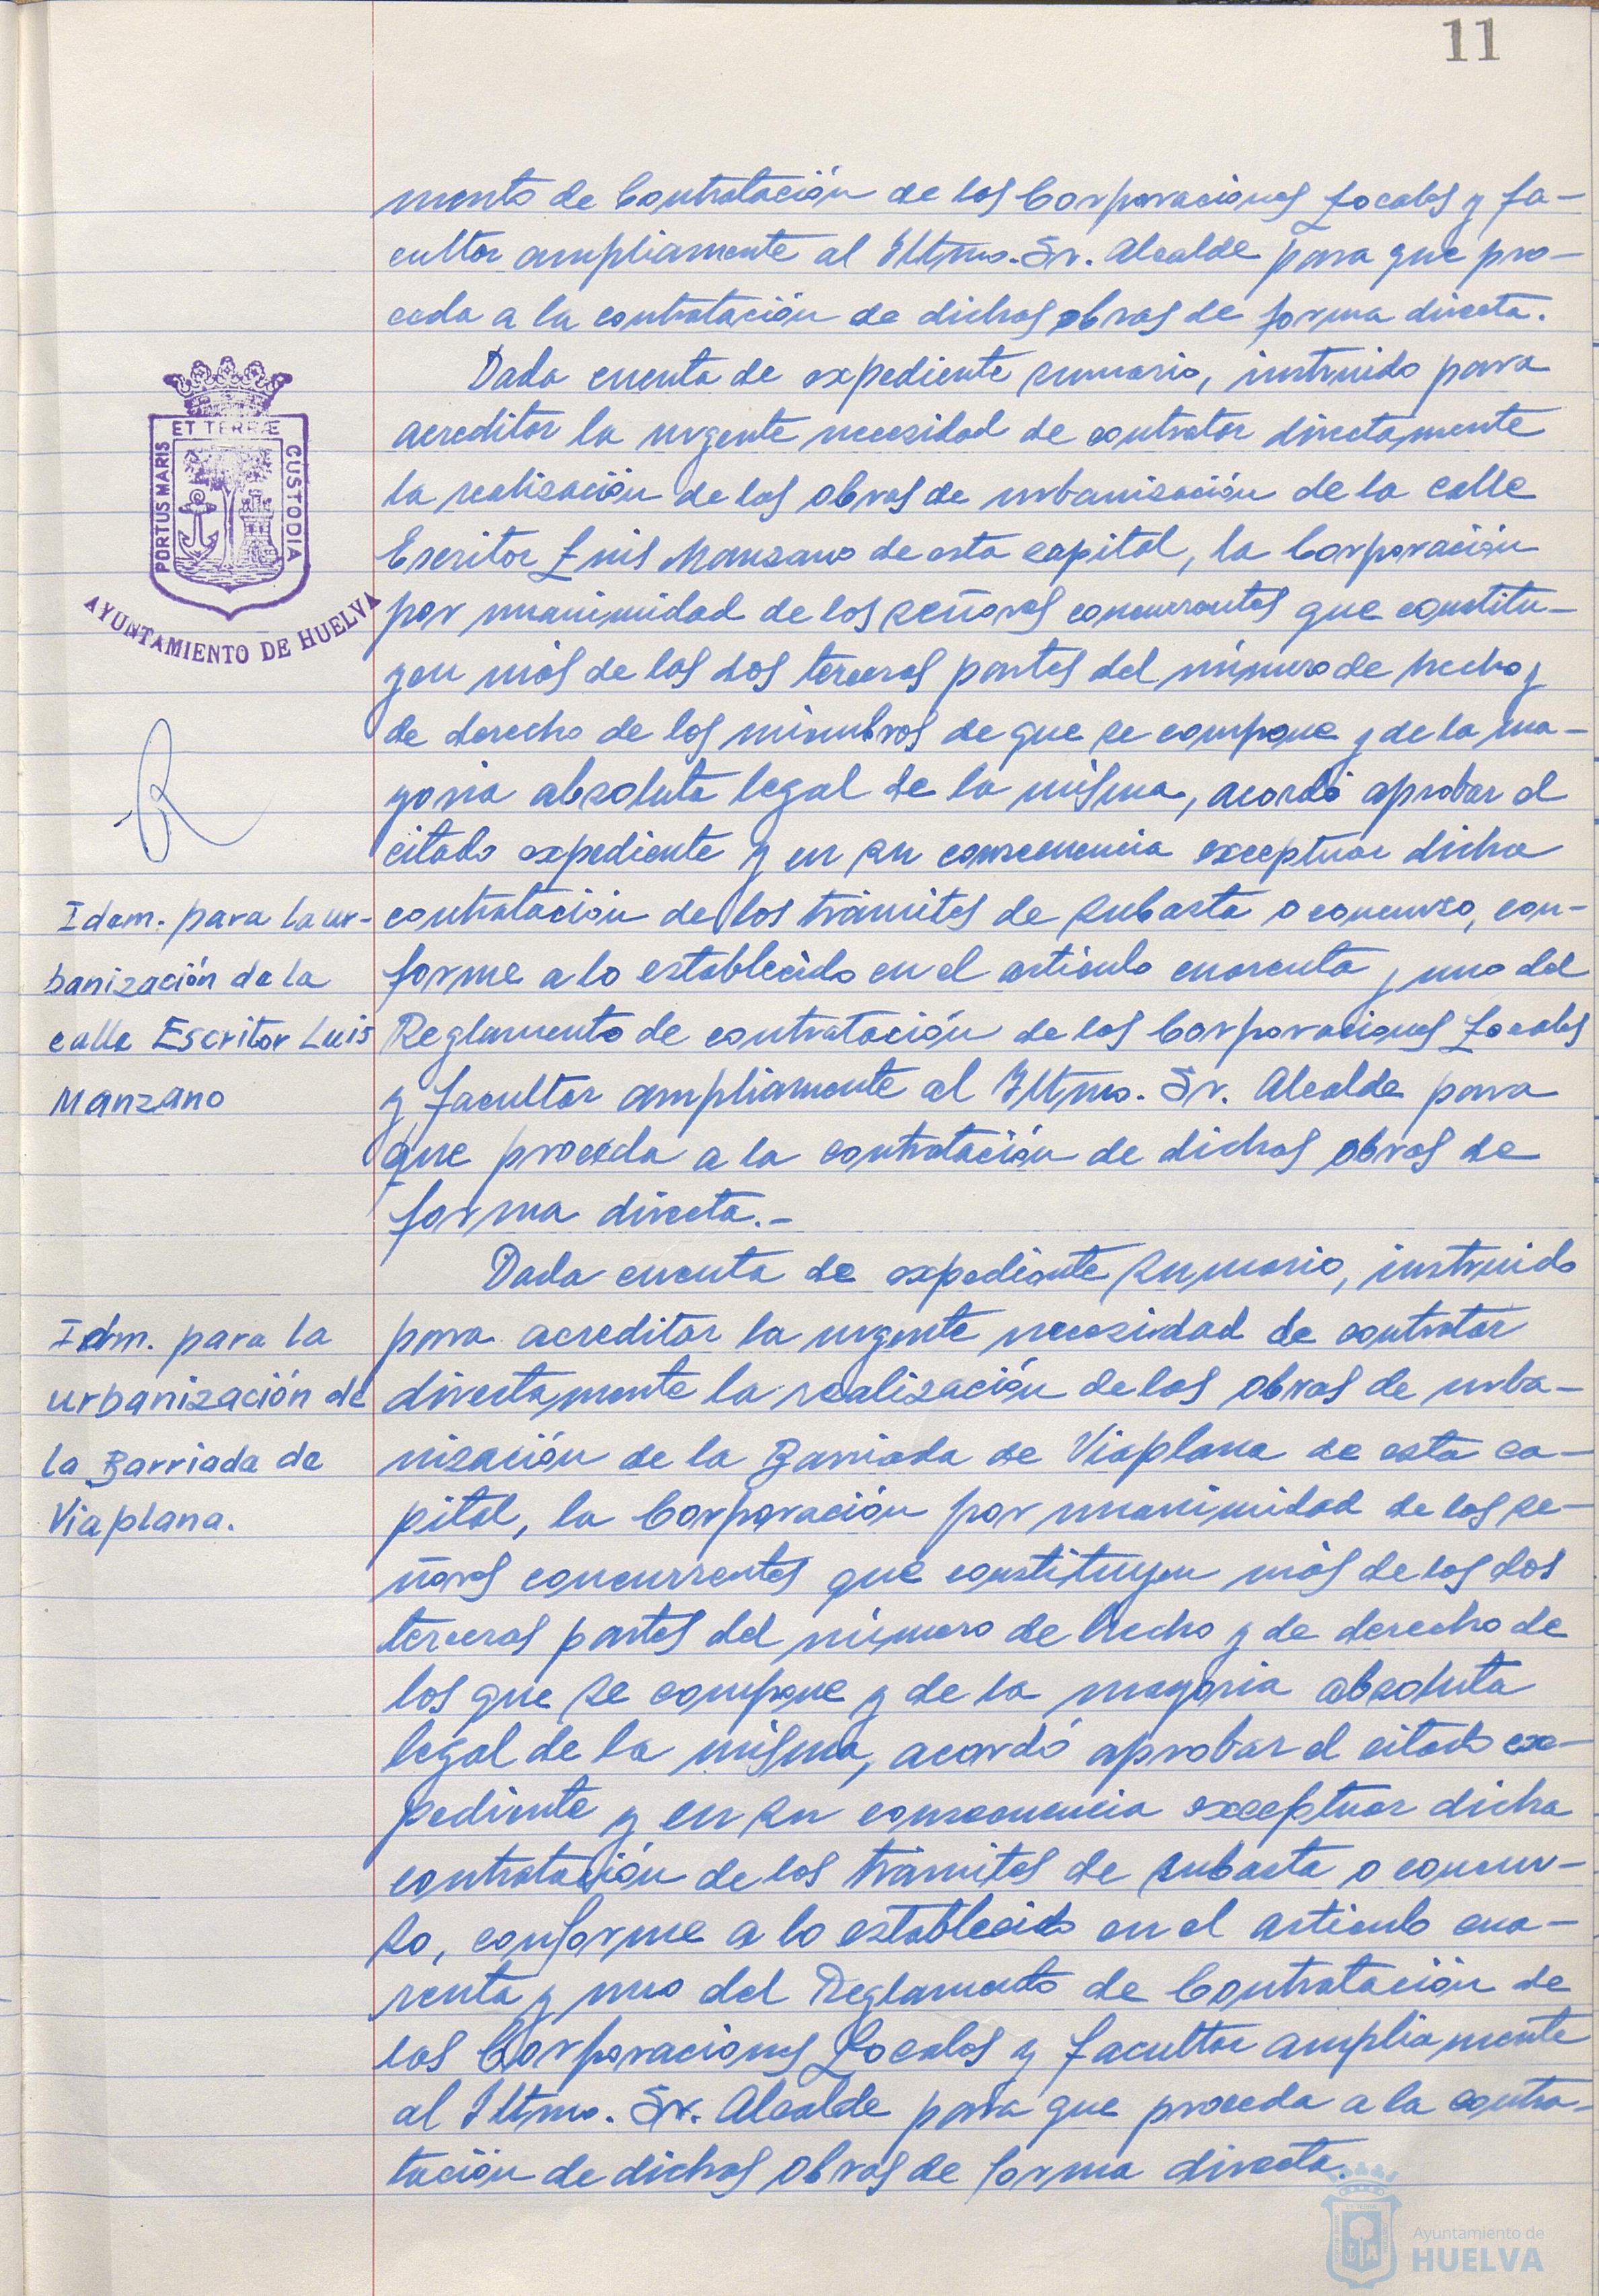 11
mento de Contratación de las Corporaciones Locales y fa-
cultar ampliamente al Iltmo. Sr. Alcalde para que pro-
ceda a la contratación de dichas obras de forma directa.
Dada cuenta de expediente sumario, instruido para
acreditar la urgente necesidad de contratar directamente
la realización de las obras de urbanización de la calle
Escritor Luis Manzano de esta capital, la Corporación
por unanimidad de los señores concurrentes que constitu-
yen más de las dos terceras partes del número de hecho y
de derecho de los miembros de que se compone y de la ma-
yoria absoluta legal de la misma, acordó aprobar el
citado expediente y en su consecuencia exceptuar dicha
contratación de los trámites de subasta o concurso, con-
forme a lo establecido en el articulo cuarenta y uno del
Reglamento de contratación de las Corporaciones Locales
y facultar ampliamente al Iltmo. Sr. Alcalde para
que proceda a la contratación de dichas obras de
forma directa.-
Dada cuenta de expediente sumario, instruido
para acreditar la urgente necesidad de contratar
directamente la realización de las obras de urba-
nización de la Barriada de Viaplana de esta ca-
pital, la Corporación por unanimidad de los se-
ñores concurrentes que constituyen más de las dos
terceras partes del número de hecho y de derecho de
los que se compone y de la mayoria absoluta
legal de la misma, acordó aprobar el citado ex-
pediente y en su consecuencia exceptuar dicha
contratación de los trámites de subasta o concur-
so, conforme a lo establecido en el articulo cua-
renta y uno del Reglamento de Contratación de
las Corporaciones Locales y facultar ampliamente
al Iltmo. Sr. Alcalde para que proceda a la contra-
tación de dichas obras de forma directa.
ET TERRÆ
PORTUS MARIS
CUSTODIA
AYUNTAMIENTO DE HUELVA
Idem. para la ur-
banización de la
calle Escritor Luis
Manzano
Idm. para la
urbanización de
la Barriada de
Viaplana.
Ayuntamiento de
HUELVA